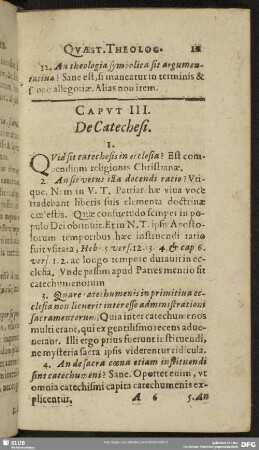 QVÆST. THEOLOG. 11
12. An theologia symbolica sit argumen-
tatiua? Sane est, si maneatur in terminis &
scopo allegoriæ. Alias non item.
CAPVT III.
De Catechesi.
1.
QVid sit catechesis in ecclesia? Est com-
pendium religionis Christianæ.
2. An sit vetus ista docendi ratio? Vti-
que. Nam in V. T. Patriarchæ viua voce
tradebant liberis suis elementa doctrinæ
cœlestis. Quæ consuetudo semper in po-
pulo Dei obtinuit. Et in N. T. ipsis Aposto-
lorum temporibus hæc instruendi ratio
fuit vsitata, Heb. 5. vers. 12. 13. 4. & cap 6.
vers. 1. 2. ac longo tempore durauit in ec-
clesia, Vnde passim apud Patres mentio sit
catechumenorum
3. Quare catechumenis in primitiua ec-
clesia non licuerit interesse administrationi
sacramentorum; Quia inter catechumenos
multi erant, qui ex gentilismo recens adue-
nerant. Illi ergo prius fuerunt instituendi,
ne mysteria sacra ipsis viderentur ridicula.
4. An de sacra cœna etiam instituendi
sint catechumeni? Sane. Oportet enim, vt
omnia catechismi capita catechumenis ex-
plicentur, A 6 5. An
SLUB
DFG